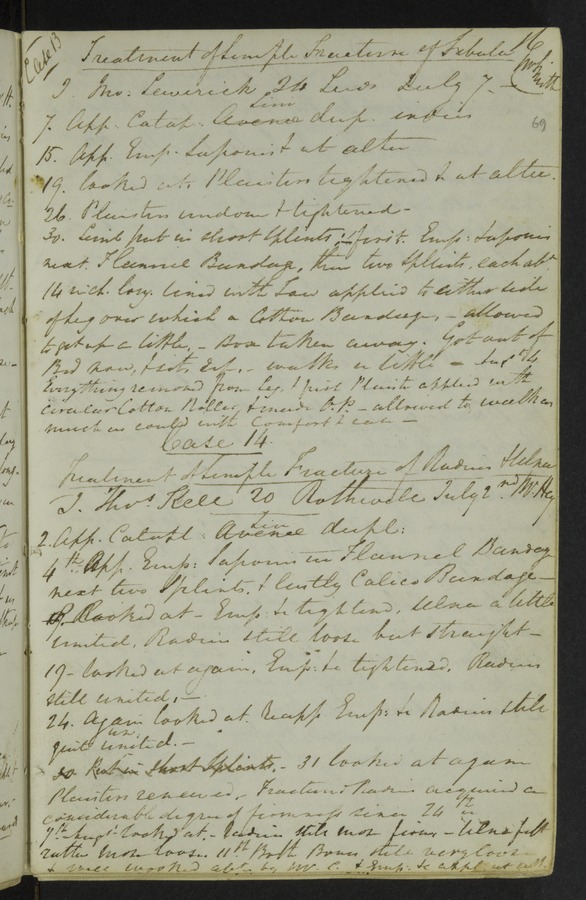 Case 13
Treatment of Simple Fracture of Fibula
16
Mr Smith
69
J. Jno: 26 Leeds July 7 -
7. App. Catap. Avenæ Lini dup. indies
15. App. Emp. Saponis & at alter
19. looked at. Plaisters tightened & at alter.
26. Plaisters undone & tightened -
30. Limb put in short Splints; first. Emp: Saponis
next. Flannel Bandage, then two Splints, each abt
14 inch long. lined with Tow applied to either side
of leg over which a Cotton Bandage, - allowed
to get up a little, - Box taken away. Got out of
Bed now, & sits up, - walks a little - Augst 14
Everything removed from Leg, & first Plaister applied with
circular Cotton Roller, & made O.P. - allowed to walk as
much as could with comfort & ease -
Case 14
Treatment of Simple Fracture of Radius & Ulna
J. Thos Kell 20 Rothwell July 2nd Mr. Hey
2. App. Catapl: Avenæ Lini dupl:
4th App. Emp: Saponis in Flannel Bandage
next two Splints, & lastly Calico Bandage -
looked at - Emp: &c tightened. Ulna a little
united, Radius still loose but straight -
17 - looked at again, Emp: &c tightened. Radius
still united, -
24. Again looked at. Reapp Emp: &c Radius still
quite un united. -
30 Put in Short Splints, - 31 looked at again
Plaisters renewed, Fractured Radius acquired a
considerable degree of firmness since 24th
7th Augst looked at. - Radius still more firm, - Ulna felt
rather more loose. 11th Both Bones still very loose
& were worked abt by Mr C. & Emp: &c